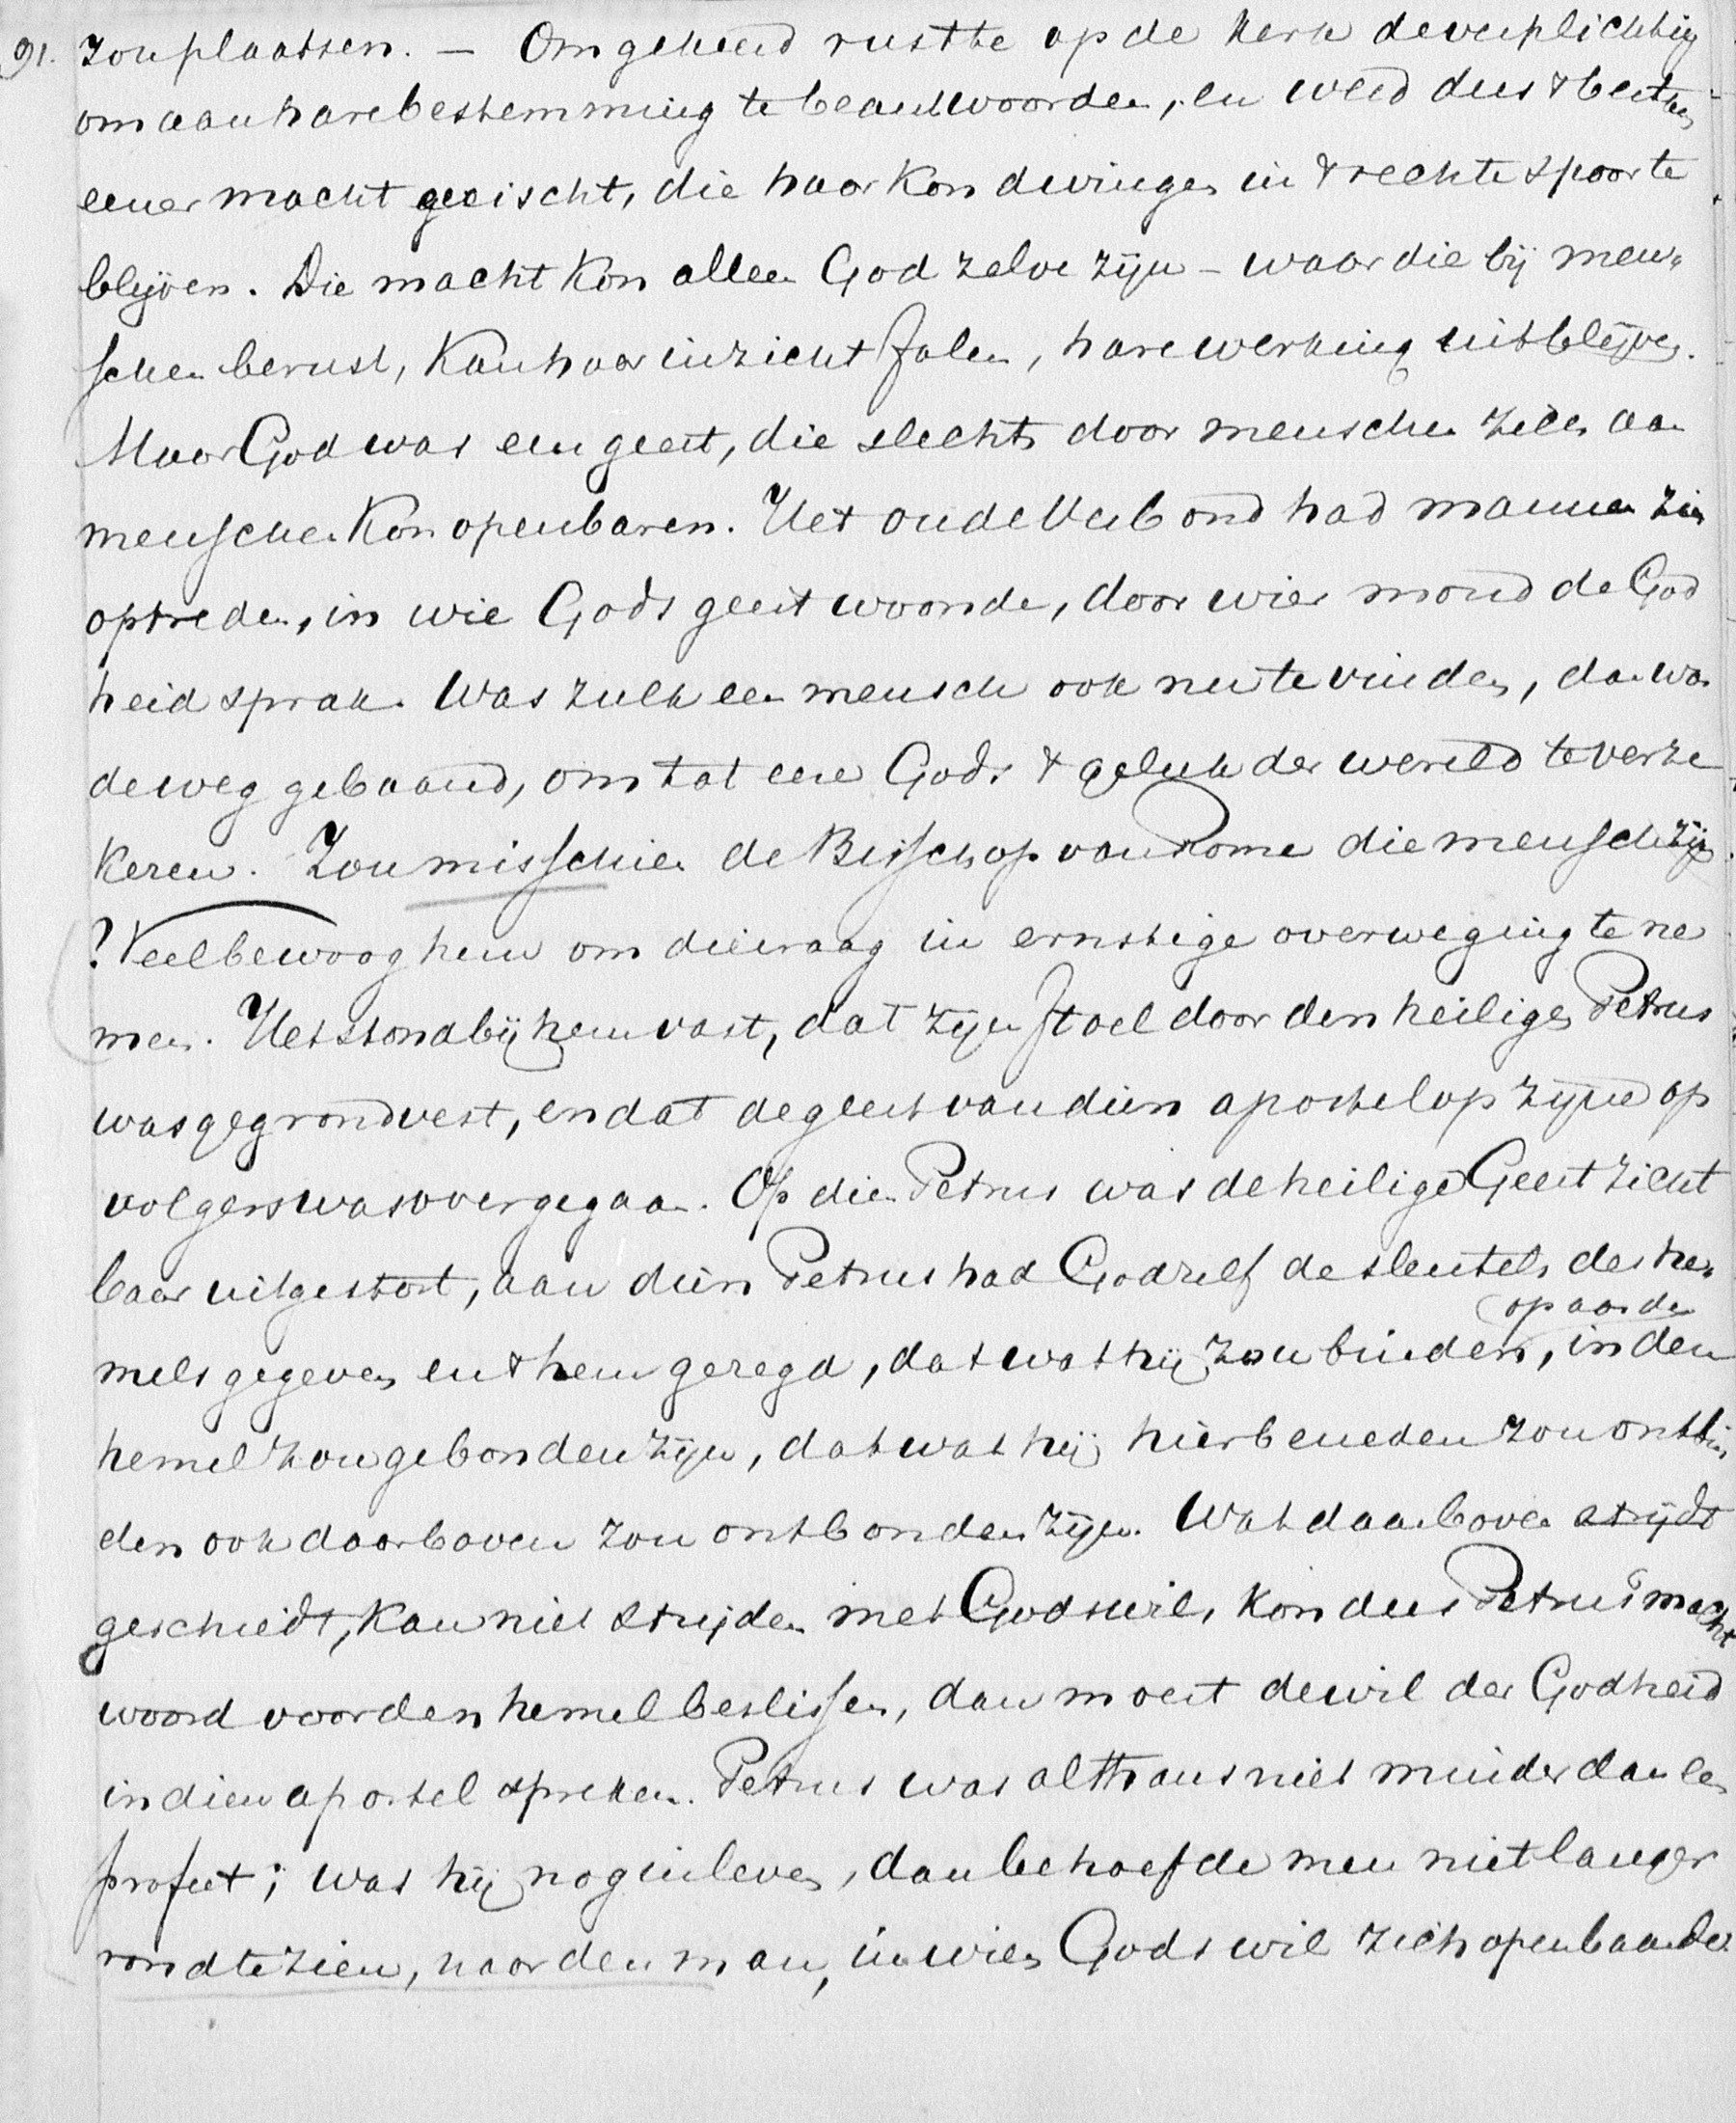 91. zou plaatsen. — Omgekeerd rustte op de kerk de verplichting
om aan hare bestemming te beantwoorden, en werd dus 't bestaan
eener macht geëischt, die haar kon dwingen in 't rechte spoor te
blijven. Die macht kon alleen God zelve zijn – waar die bij men-
schen berust, kan haar inzicht falen, hare werking uitblijven.
Maar God was een geest, die slechts door menschen zich aan
menschen kon openbaren. Het oude Verbond had mannen zien
optreden, in wie Gods geest woonde, door wier mond de God
heid sprak. Was zulk een mensch ook nu te vinden, dan was
de weg gebaand, om tot eere Gods 't geluk der wereld te verze
keren. Zou misschien de Bisschop van Rome die mensch zijn
? Veel bewoog hem om die vraag in ernstige overweging te ne
men. Het stond bij hem vast, dat zijn stoel door den heiligen Petrus
was gegrondvest, en dat de geest van dien apostel op zijne op
volgers was overgegaan. Op dien Petrus was de heilige Geest zicht
baar uitgestort, aan dien Petrus had God zelf de sleutels des he-
op aarde
mels gegeven en 't hem gezegd, dat wat hij zou binden, in den
hemel zou gebonden zijn, dat wat hij hier beneden zou ontbin
den ook daarboven zou ontbonden zijn. Wat daarboven strijdt
geschiedt, kan niet strijden met Gods wil, kon dus Petrus' macht
woord voor den hemel beslissen, dan moest de wil der Godheid
in dien apostel spreken. Petrus was althans niet minder dan een
profeet; was hij nog in leven, dan behoefde men niet langer
rond te zien, naar den man, in wien Gods wil zich openbaarde